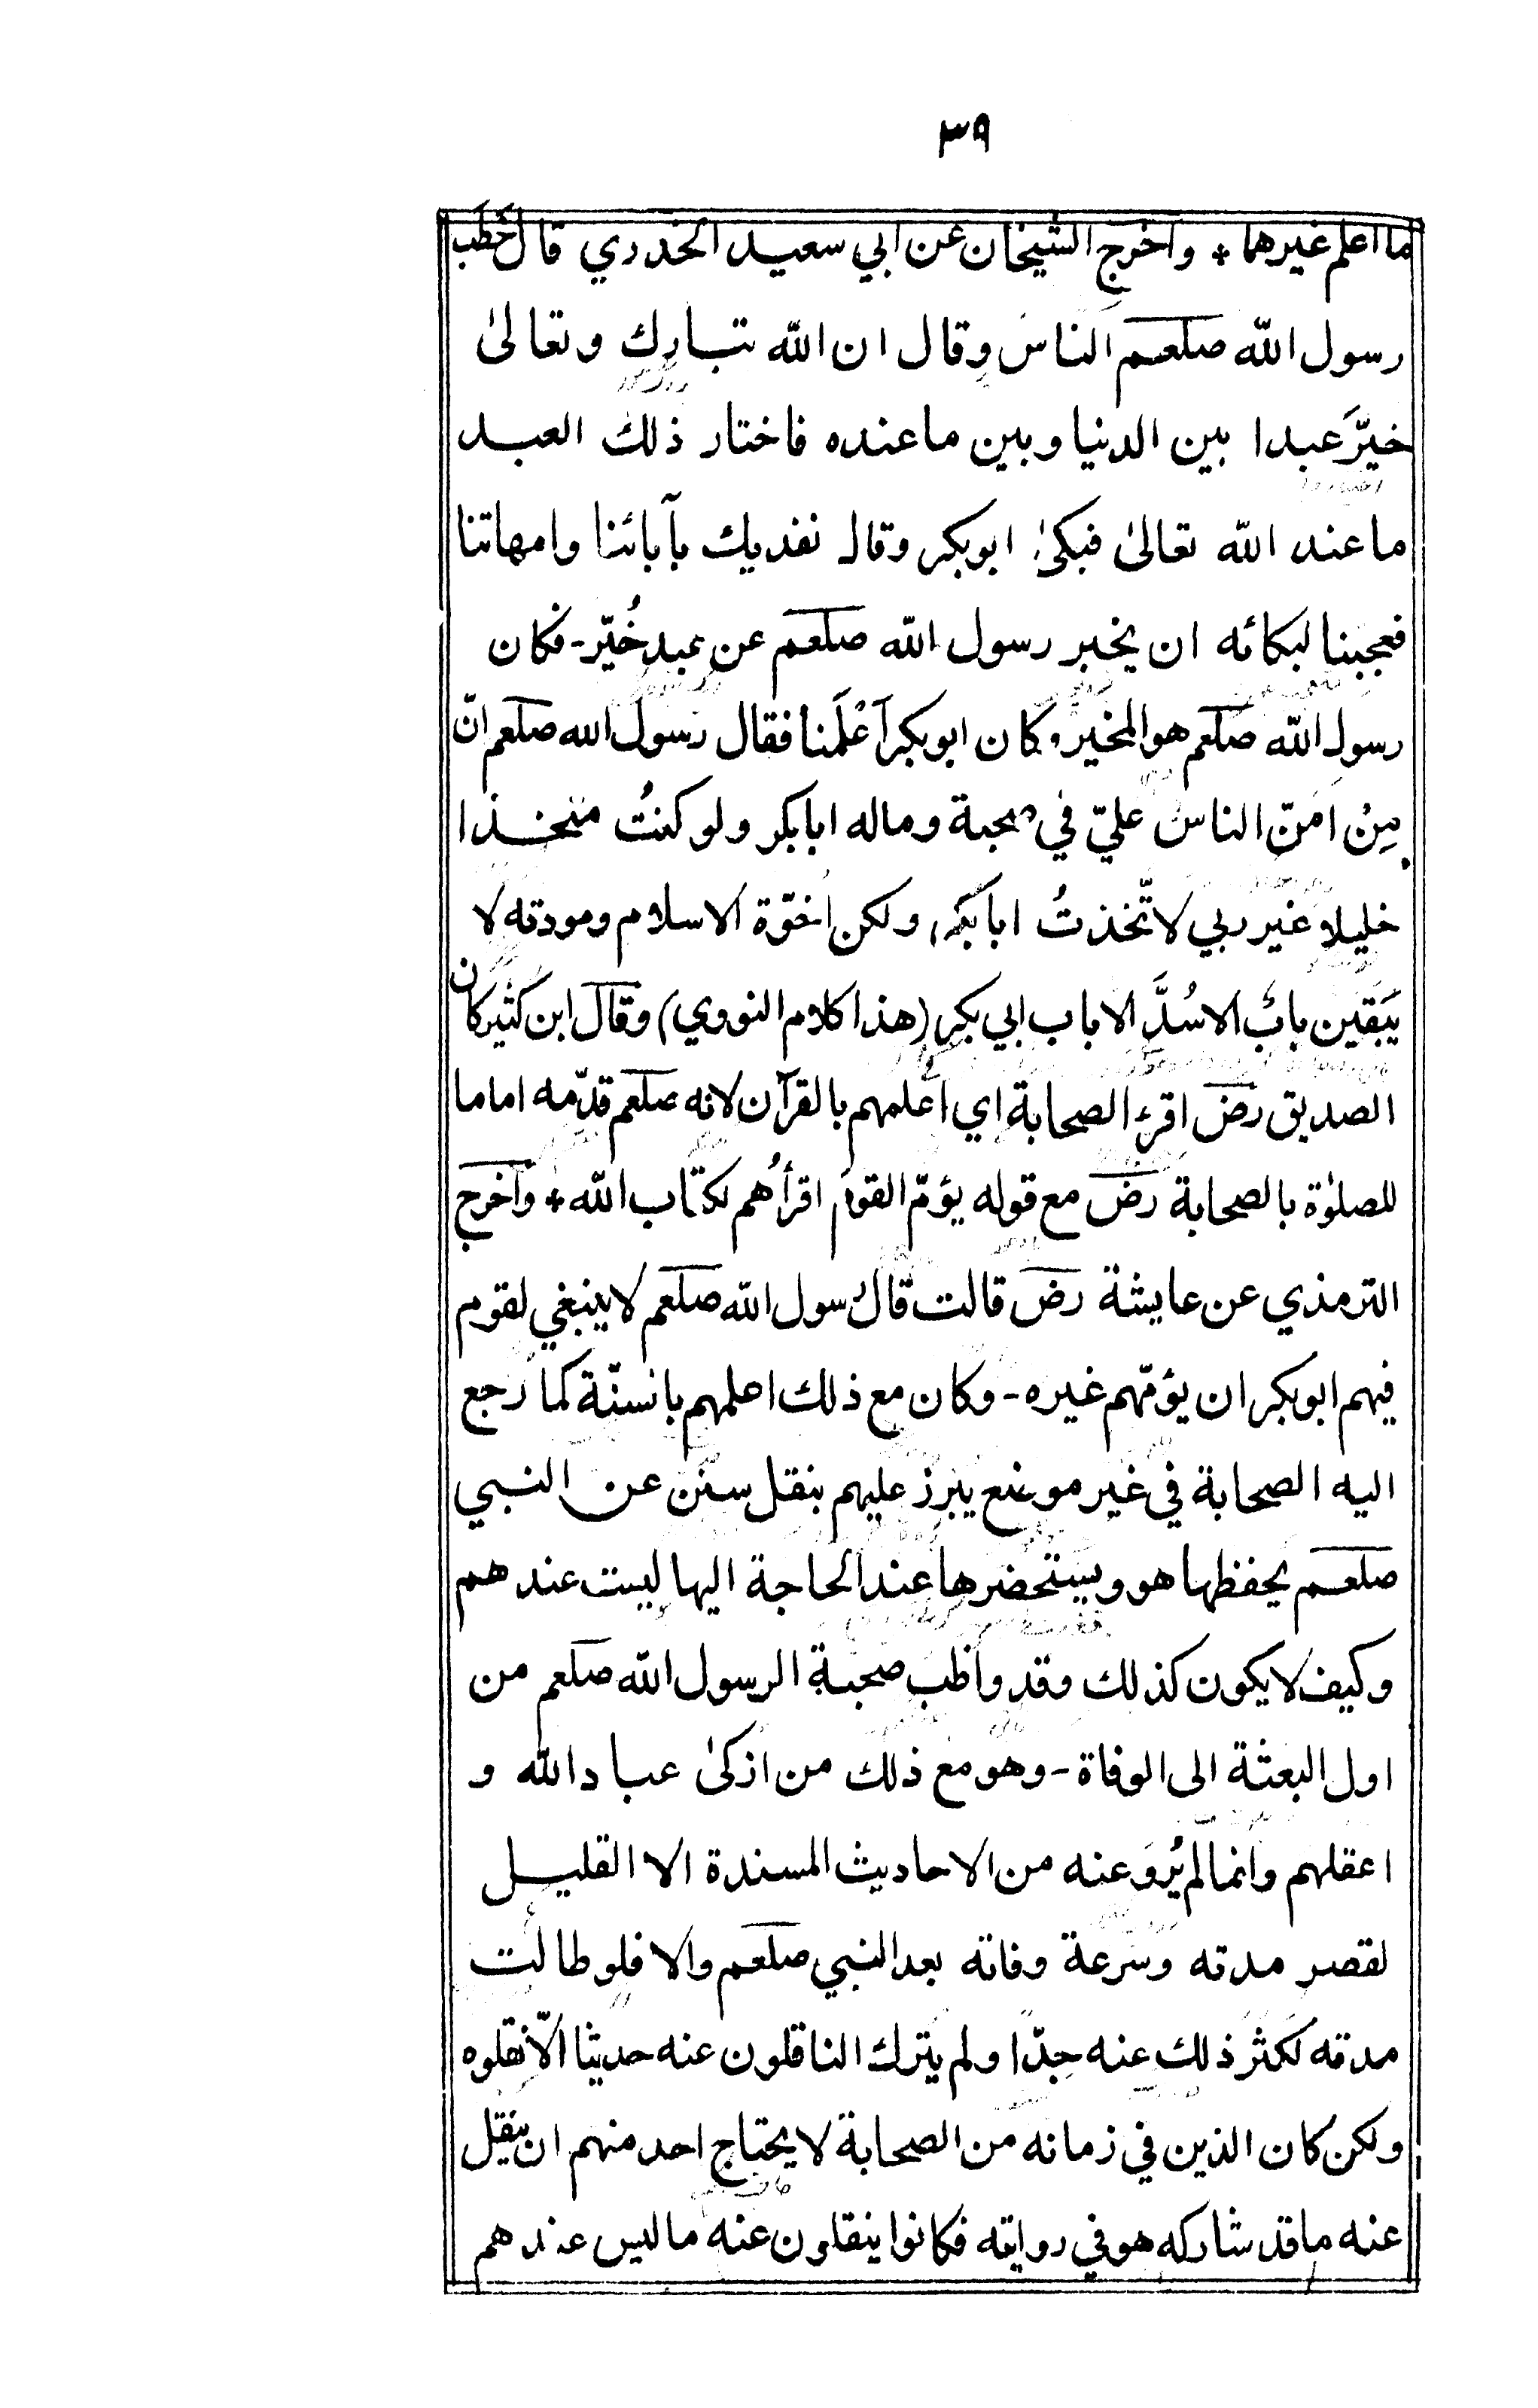 ٣٩
ما اعلم غيرهما * واخرج الشيخان عن ابي سعيد الخدري قال خطب
رسول الله صلعم الناس وقال ان الله تبارك وتعالىٰ
خيّرَ عبدا بين الدنيا وبين ما عنده فاختار ذلك العبد
ما عند الله تعالىٰ فبكىٰ ابوبكر وقال نفديك بآبائنا وامهاتنا
فعجبنا لبكائه ان يخبر رسول الله صلعم عن عبد خُيّر - فكان
رسول الله صلعم هو المخير وكان ابوبكر أعْلَمنا فقال رسول الله صلعم انّ
مِنْ امَنّ الناس عليّ في صحبة وماله ابابكر ولو كنتُ متخذا
خليلا غير ربي لاتّخذتُ ابابكر ولكن اخوّة الاسلام ومودته لا
يَبَقين بابٌ الا سُدَّ الا باب ابي بكر (هذا كلام النووي) وقال ابن كثير كان
الصديق رض اقرء الصحابة اي اعلمهم بالقرآن لانه صلعم قدّمه اماما
للصلوٰة بالصحابة رض مع قوله يؤمّ القوم اقرأُهم لكتاب الله * واخرج
الترمذي عن عايشة رض قالت قال رسول الله صلعم لا ينبغي لقوم
فيهم ابوبكر ان يؤمّهم غيره - وكان مع ذلك اعلمهم بالسنّة كما رجع
اليه الصحابة في غير موضع يبرز عليهم بنقل سنن عن النبي
صلعم يحفظها هو ويستحضرها عند الحاجة اليها ليست عندهم
وكيف لا يكون كذلك وقد واظب صحبة الرسول الله صلعم من
اول البعثة الى الوفاة - وهو مع ذلك من ازكىٰ عباد الله و
اعقلهم وانما لم يُروَ عنه من الاحاديث المسندة الا القليل
لقصر مدته وسرعة وفاته بعد النبي صلعم والا فلو طالت
مدته لكثر ذلك عنه جدّا ولم يترك الناقلون عنه حديثا الّا نقلوه
ولكن كان الذين في زمانه من الصحابة لا يحتاج احد منهم ان ينقل
عنه ما قد شاركه هو في روايته فكانوا ينقلون عنه ما ليس عندهم